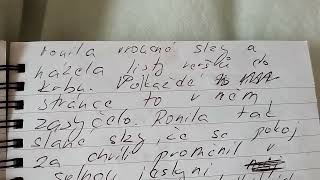 ronila vroucné slzy a
házela listy veršů do
krbu. Pokaždé
strance to v něm
zasyčelo. Ronila tak
slané slzy, že se pokoj
za chvíli proměnil v
solnou jeskyni